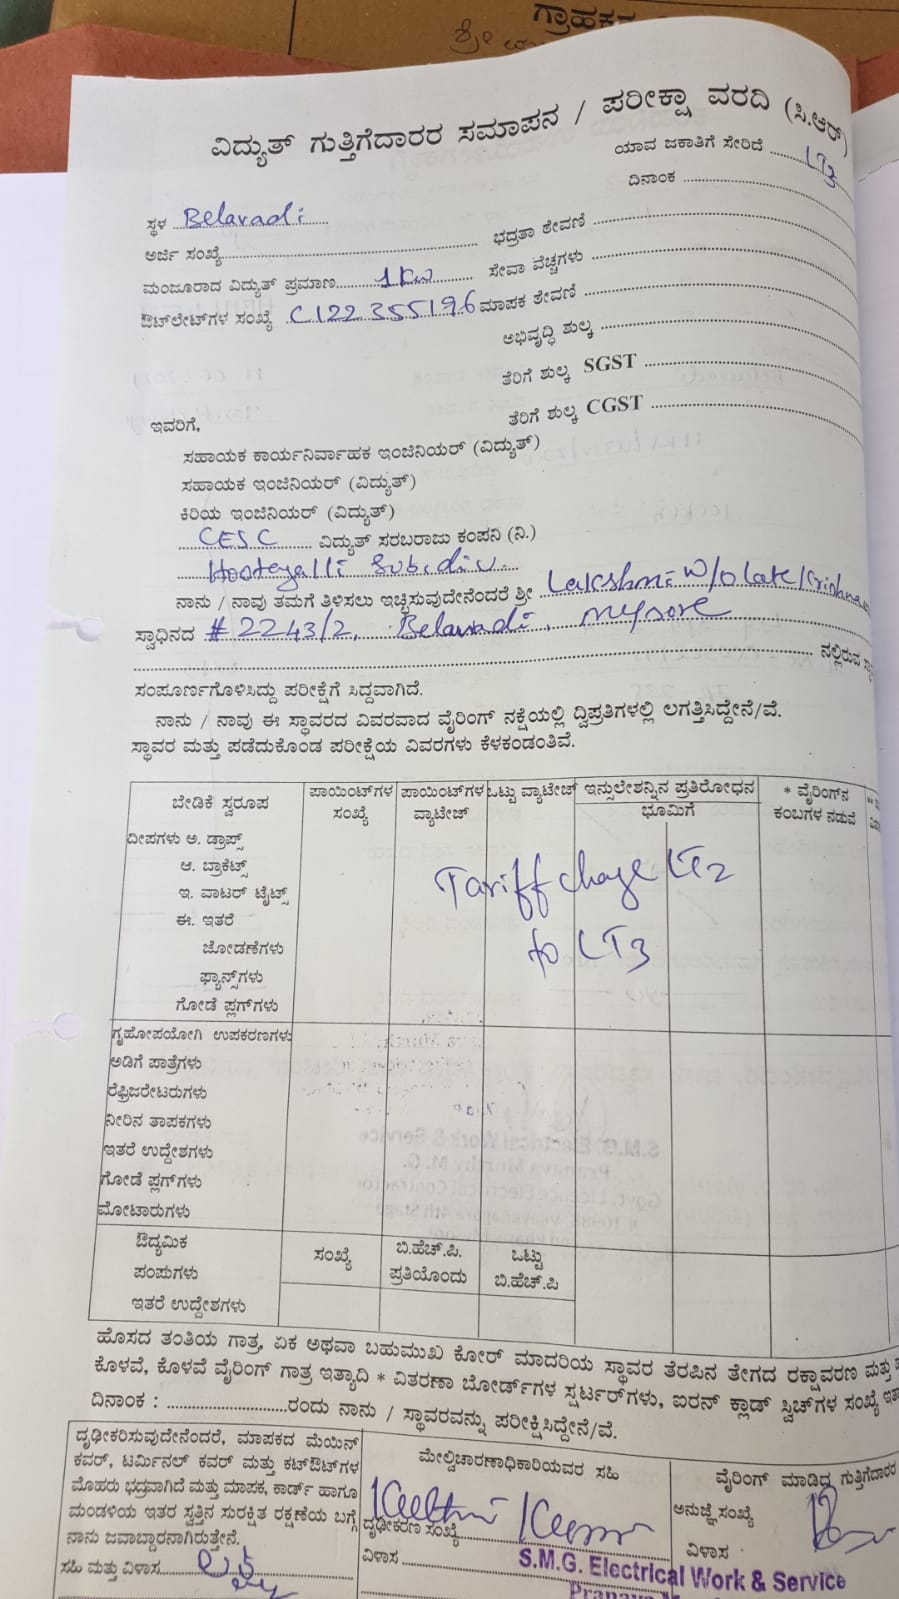 ಗ್ರಾಹಕರ
ಶ್ರೀ
ವಿದ್ಯುತ್ ಗುತ್ತಿಗೆದಾರರ ಸಮಾಪನ / ಪರೀಕ್ಷಾ ವರದಿ (ಸಿ.ಆರ್)
ಯಾವ ಜಕಾತಿಗೆ ಸೇರಿದೆ LT3
ದಿನಾಂಕ
ಸ್ಥಳ Belavadi
ಅರ್ಜಿ ಸಂಖ್ಯೆ
ಭದ್ರತಾ ಠೇವಣಿ
ಮಂಜೂರಾದ ವಿದ್ಯುತ್ ಪ್ರಮಾಣ 1KW
ಸೇವಾ ವೆಚ್ಚಗಳು
ಔಟ್‌ಲೇಟ್‌ಗಳ ಸಂಖ್ಯೆ C122355196
ಮಾಪಕ ಠೇವಣಿ
ಅಭಿವೃದ್ಧಿ ಶುಲ್ಕ
ತೆರಿಗೆ ಶುಲ್ಕ SGST
ತೆರಿಗೆ ಶುಲ್ಕ CGST
ಇವರಿಗೆ,
ಸಹಾಯಕ ಕಾರ್ಯನಿರ್ವಾಹಕ ಇಂಜಿನಿಯರ್ (ವಿದ್ಯುತ್)
ಸಹಾಯಕ ಇಂಜಿನಿಯರ್ (ವಿದ್ಯುತ್)
ಕಿರಿಯ ಇಂಜಿನಿಯರ್ (ವಿದ್ಯುತ್)
CESC ವಿದ್ಯುತ್ ಸರಬರಾಜು ಕಂಪನಿ (ನಿ.)
Hootagalli Subidiv
ನಾನು / ನಾವು ತಮಗೆ ತಿಳಿಸಲು ಇಚ್ಛಿಸುವುದೇನೆಂದರೆ ಶ್ರೀ Lakshmi W/o late
ಸ್ವಾಧಿನದ # 2243/2, Belavadi, mysore
ನಲ್ಲಿರುವ
ಸಂಪೂರ್ಣಗೊಳಿಸಿದ್ದು ಪರೀಕ್ಷೆಗೆ ಸಿದ್ಧವಾಗಿದೆ.
ನಾನು / ನಾವು ಈ ಸ್ಥಾವರದ ವಿವರವಾದ ವೈರಿಂಗ್ ನಕ್ಷೆಯಲ್ಲಿ ದ್ವಿಪ್ರತಿಗಳಲ್ಲಿ ಲಗತ್ತಿಸಿದ್ದೇನೆ/ವೆ.
ಸ್ಥಾವರ ಮತ್ತು ಪಡೆದುಕೊಂಡ ಪರೀಕ್ಷೆಯ ವಿವರಗಳು ಕೆಳಕಂಡಂತಿವೆ.
ಬೇಡಿಕೆ ಸ್ವರೂಪ
ಪಾಯಿಂಟ್‌ಗಳ ಸಂಖ್ಯೆ
ಪಾಯಿಂಟ್‌ಗಳ ವ್ಯಾಟೇಜ್
ಒಟ್ಟು ವ್ಯಾಟೇಜ್
ಇನ್ಸುಲೇಶನ್ನಿನ ಪ್ರತಿರೋಧನ
ಭೂಮಿಗೆ
* ವೈರಿಂಗ್‌ನ ಕಂಬಗಳ ನಡುವೆ
ದೀಪಗಳು ಅ. ಡ್ರಾಪ್ಸ್
ಆ. ಬ್ರಾಕೆಟ್ಸ್
ಇ. ವಾಟರ್ ಟೈಟ್ಸ್
ಈ. ಇತರೆ
ಜೋಡಣೆಗಳು
ಫ್ಯಾನ್ಸ್‌ಗಳು
ಗೋಡೆ ಪ್ಲಗ್‌ಗಳು
Tariff chage LT2
to LT3
ಗೃಹೋಪಯೋಗಿ ಉಪಕರಣಗಳು
ಅಡಿಗೆ ಪಾತ್ರೆಗಳು
ರೆಫ್ರಿಜರೇಟರುಗಳು
ನೀರಿನ ತಾಪಕಗಳು
ಇತರೆ ಉದ್ದೇಶಗಳು
ಗೋಡೆ ಪ್ಲಗ್‌ಗಳು
ಮೋಟಾರುಗಳು
ಔದ್ಯಮಿಕ
ಪಂಪುಗಳು
ಇತರೆ ಉದ್ದೇಶಗಳು
ಸಂಖ್ಯೆ
ಬಿ.ಹೆಚ್.ಪಿ. ಪ್ರತಿಯೊಂದು
ಒಟ್ಟು ಬಿ.ಹೆಚ್.ಪಿ
ಹೊಸದ ತಂತಿಯ ಗಾತ್ರ, ಏಕ ಅಥವಾ ಬಹುಮುಖ ಕೋರ್ ಮಾದರಿಯ ಸ್ಥಾವರ ತೆರಪಿನ ತೇಗದ ರಕ್ಷಾವರಣ ಮತ್ತು
ಕೊಳವೆ, ಕೊಳವೆ ವೈರಿಂಗ್ ಗಾತ್ರ ಇತ್ಯಾದಿ * ವಿತರಣಾ ಬೋರ್ಡ್‌ಗಳ ಸ್ಟರ್ಟರ್‌ಗಳು, ಐರನ್ ಕ್ಲಾಡ್ ಸ್ವಿಚ್‌ಗಳ ಸಂಖ್ಯೆ
ದಿನಾಂಕ : ರಂದು ನಾನು / ಸ್ಥಾವರವನ್ನು ಪರೀಕ್ಷಿಸಿದ್ದೇನೆ/ವೆ.
ದೃಢೀಕರಿಸುವುದೇನೆಂದರೆ, ಮಾಪಕದ ಮೆಯಿನ್
ಕವರ್, ಟರ್ಮಿನಲ್ ಕವರ್ ಮತ್ತು ಕಟ್‌ಔಟ್‌ಗಳ
ಮೊಹರು ಭದ್ರವಾಗಿದೆ ಮತ್ತು ಮಾಪಕ, ಕಾರ್ಡ್ ಹಾಗೂ
ಮಂಡಳಿಯ ಇತರ ಸ್ವತ್ತಿನ ಸುರಕ್ಷಿತ ರಕ್ಷಣೆಯ ಬಗ್ಗೆ
ನಾನು ಜವಾಬ್ದಾರನಾಗಿರುತ್ತೇನೆ.
ಸಹಿ ಮತ್ತು ವಿಳಾಸ
ಮೇಲ್ವಿಚಾರಣಾಧಿಕಾರಿಯವರ ಸಹಿ
ದೃಢೀಕರಣ ಸಂಖ್ಯೆ
ವಿಳಾಸ
ವೈರಿಂಗ್ ಮಾಡಿದ ಗುತ್ತಿಗೆದಾರರ
ಅನುಜ್ಞೆ ಸಂಖ್ಯೆ
ವಿಳಾಸ
S.M.G. Electrical Work & Service